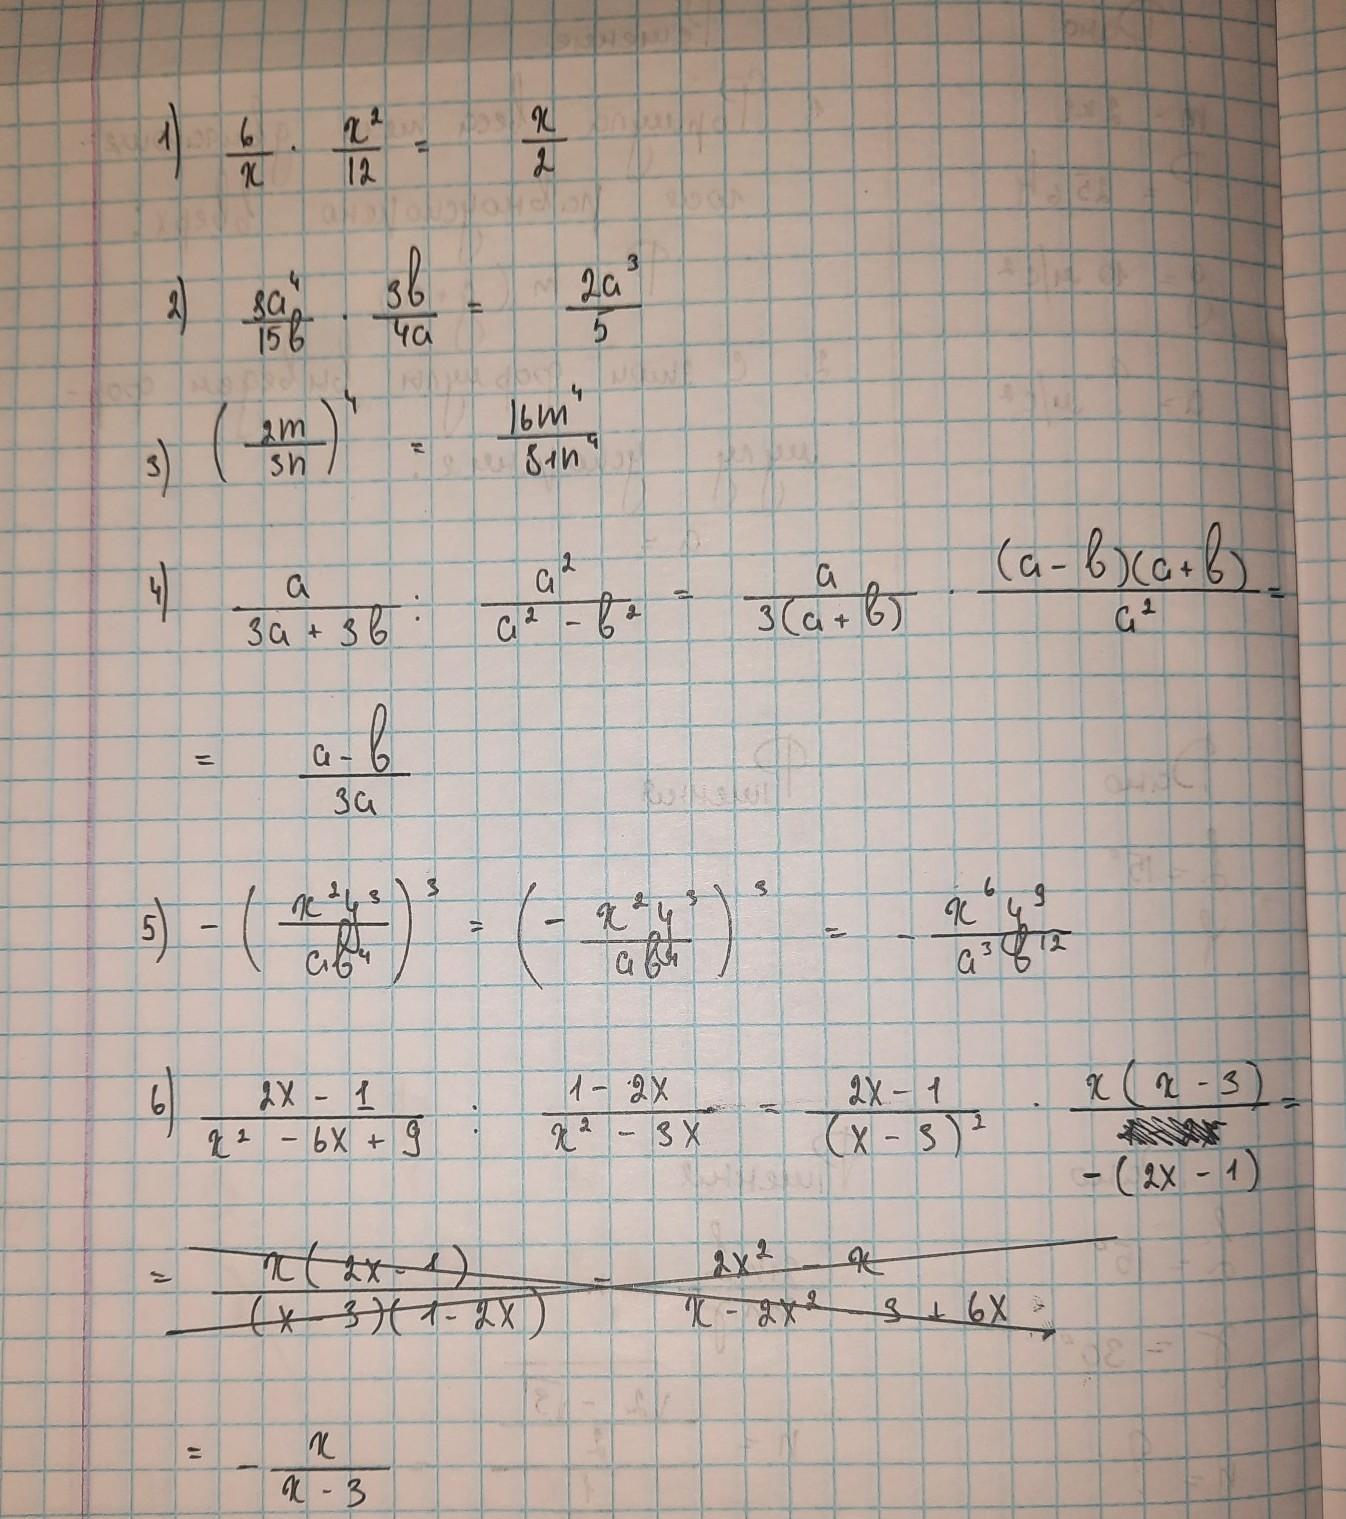 1) 6/x · x²/12 = x/2
2) 8a⁴/15b · 3b/4a = 2a³/5
3) (2m/3n)⁴ = 16m⁴/81n⁴
4) a/(3a + 3b) : a²/(a² - b²) = a/(3(a + b)) · (a - b)(a + b)/a² =
= (a - b)/3a
5) - (x²y³/ab⁴)³ = (- x²y³/ab⁴)³ = - x⁶y⁹/a³b¹²
6) (2x - 1)/(x² - 6x + 9) : (1 - 2x)/(x² - 3x) = (2x - 1)/(x - 3)² · x(x - 3)/-(2x - 1) =
= x(2x - 1)/(x - 3)(1 - 2x) = (2x² - x)/(x - 2x² - 3 + 6x)
= - x/(x - 3)